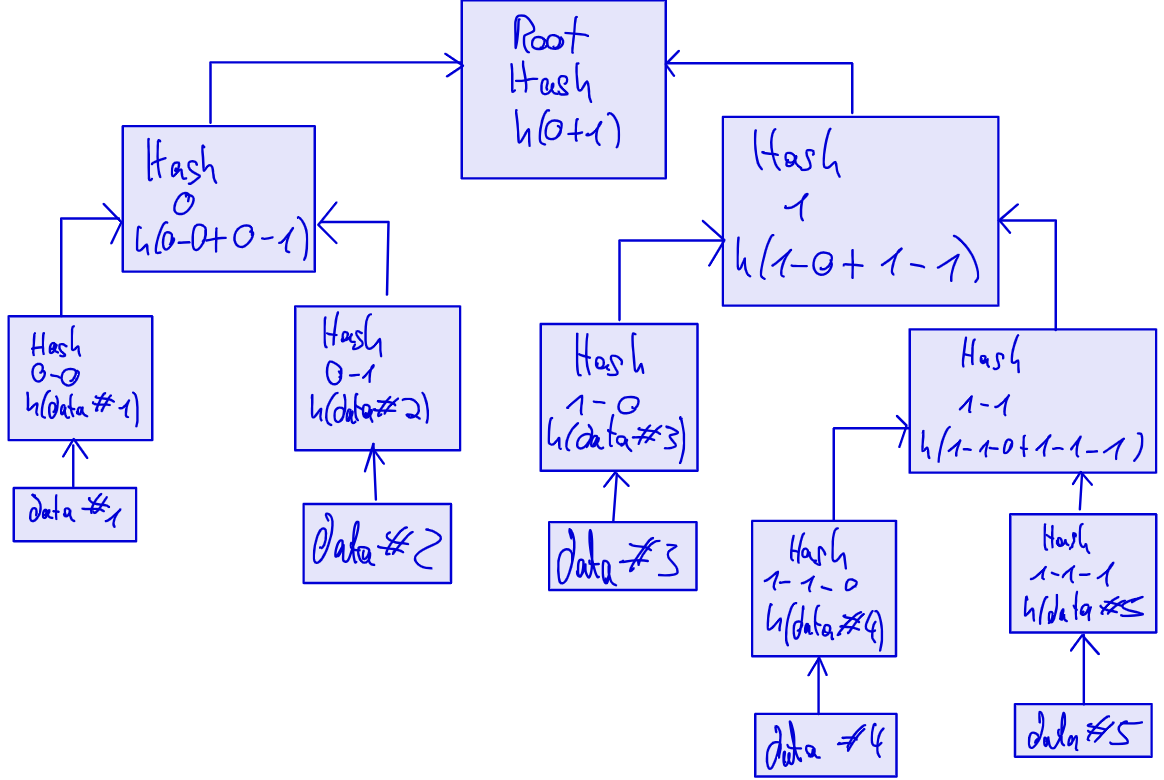 Root
Hash
h(0+1)
Hash
0
h(0-0+0-1)
Hash
1
h(1-0+1-1)
Hash
0-0
h(data#1)
Hash
0-1
h(data#2)
Hash
1-0
h(data#3)
Hash
1-1
h(1-1-0+1-1-1)
data #1
data #2
data #3
Hash
1-1-0
h(data#4)
Hash
1-1-1
h(data#5
data #4
data #5